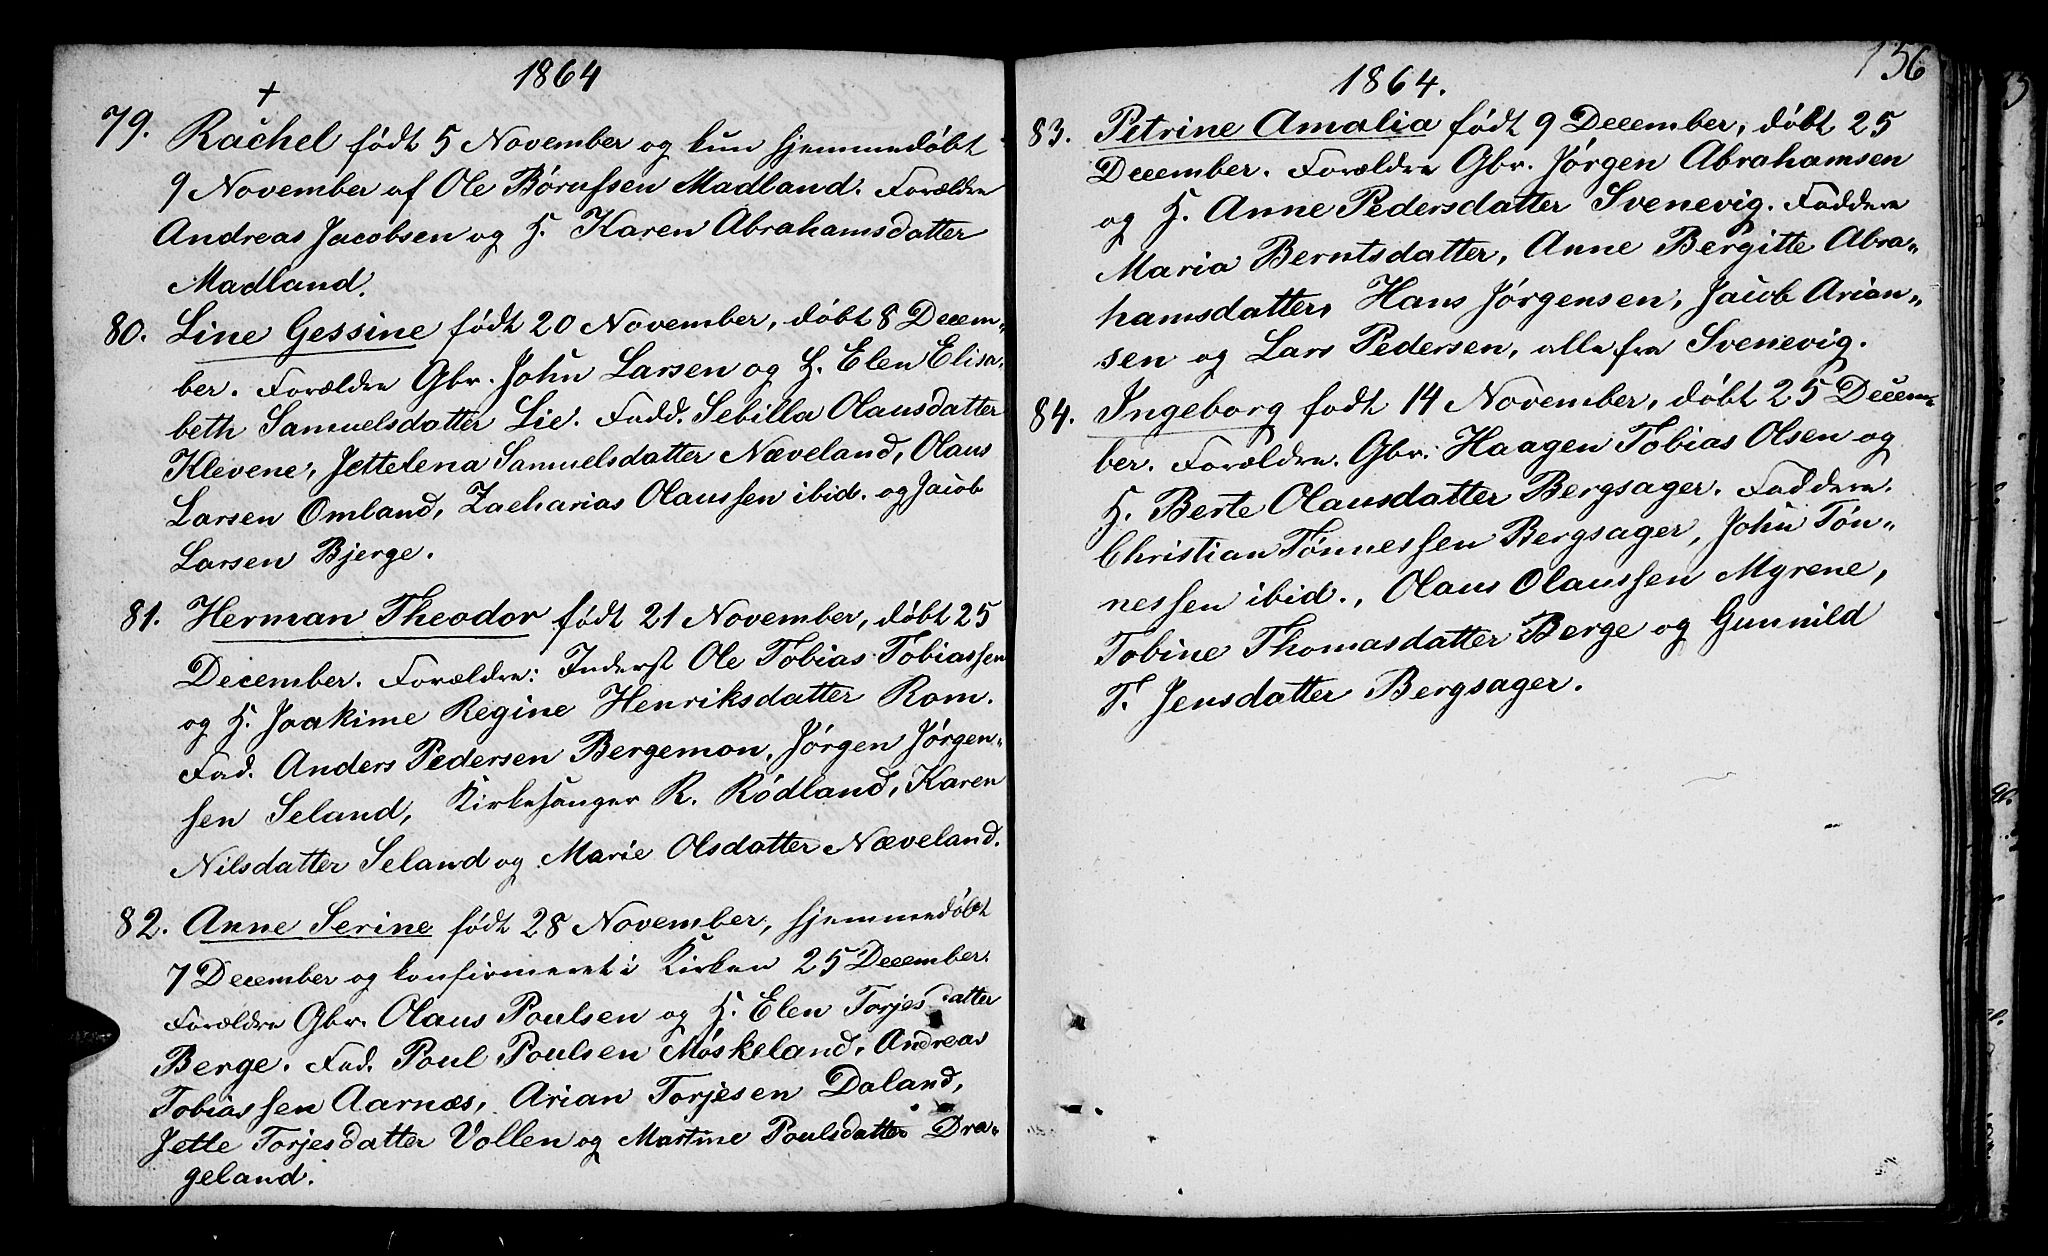 1864
+
79. Rachel født 5 November og kun hjemmedøbt
9 November af Ole Børufsen Madland. Forældre
Andreas Jacobsen og H. Karen Abrahamsdatter
Madland.
80. Line Gessine født 20 November, døbt 8 Decem„
ber. Forældre Gbr. John Larsen og H. Elen Elisa„
beth Samuelsdatter Lie. Fadd. Sebilla Olausdatter
Klevene, Jettelena Samuelsdatter Næveland, Olaus
Larsen Omland, Zacharias Olaussen ibid. og Jacob
Larsen Bjerge.
81. Herman Theodor født 21 November, døbt 25
December. Forældre: Inderst Ole Tobias Tobiassen
og H. Joakime Regine Henriksdatter Rom.
Fad. Anders Pedersen Bergemon, Jørgen Jørgen„
sen Seland, Kirkesanger R. Rødland, Karen
Nilsdatter Seland og Marie Olsdatter Næveland.
82. Anne Serine født 28 November, hjemmedøbt
7 December og konfirmeret i Kirken 25 December.
Forældre Gbr. Olaus Poulsen og H. Elen Torjesdatter
Berge. Fad. Poul Poulsen Møskeland, Andreas
Tobiassen Aarnæs, Arian Torjesen Daland,
Jette Torjesdatter Vollen og Martine Poulsdatter Dra„
geland.
156
1864.
83. Petrine Amalia født 9 December, døbt 25
December. Forældre Gbr. Jørgen Abrahamsen
og H. Anne Pedersdatter Svenevig. Faddere
Maria Berntsdatter, Anne Bergitte Abra„
hamsdatter, Hans Jørgensen, Jacob Arian„
sen og Lars Pedersen, alle fra Svenevig.
84. Ingeborg født 14 November, døbt 25 Decem„
ber. Forældre. Gbr. Haagen Tobias Olsen og
H. Berte Olausdatter Bergsager. Faddere.
Christian Tønnessen Bergsager, John Tøn„
nessen ibid., Olaus Olaussen Myrene,
Tobine Thomasdatter Berge og Gunnild
T. Jensdatter Bergsager.